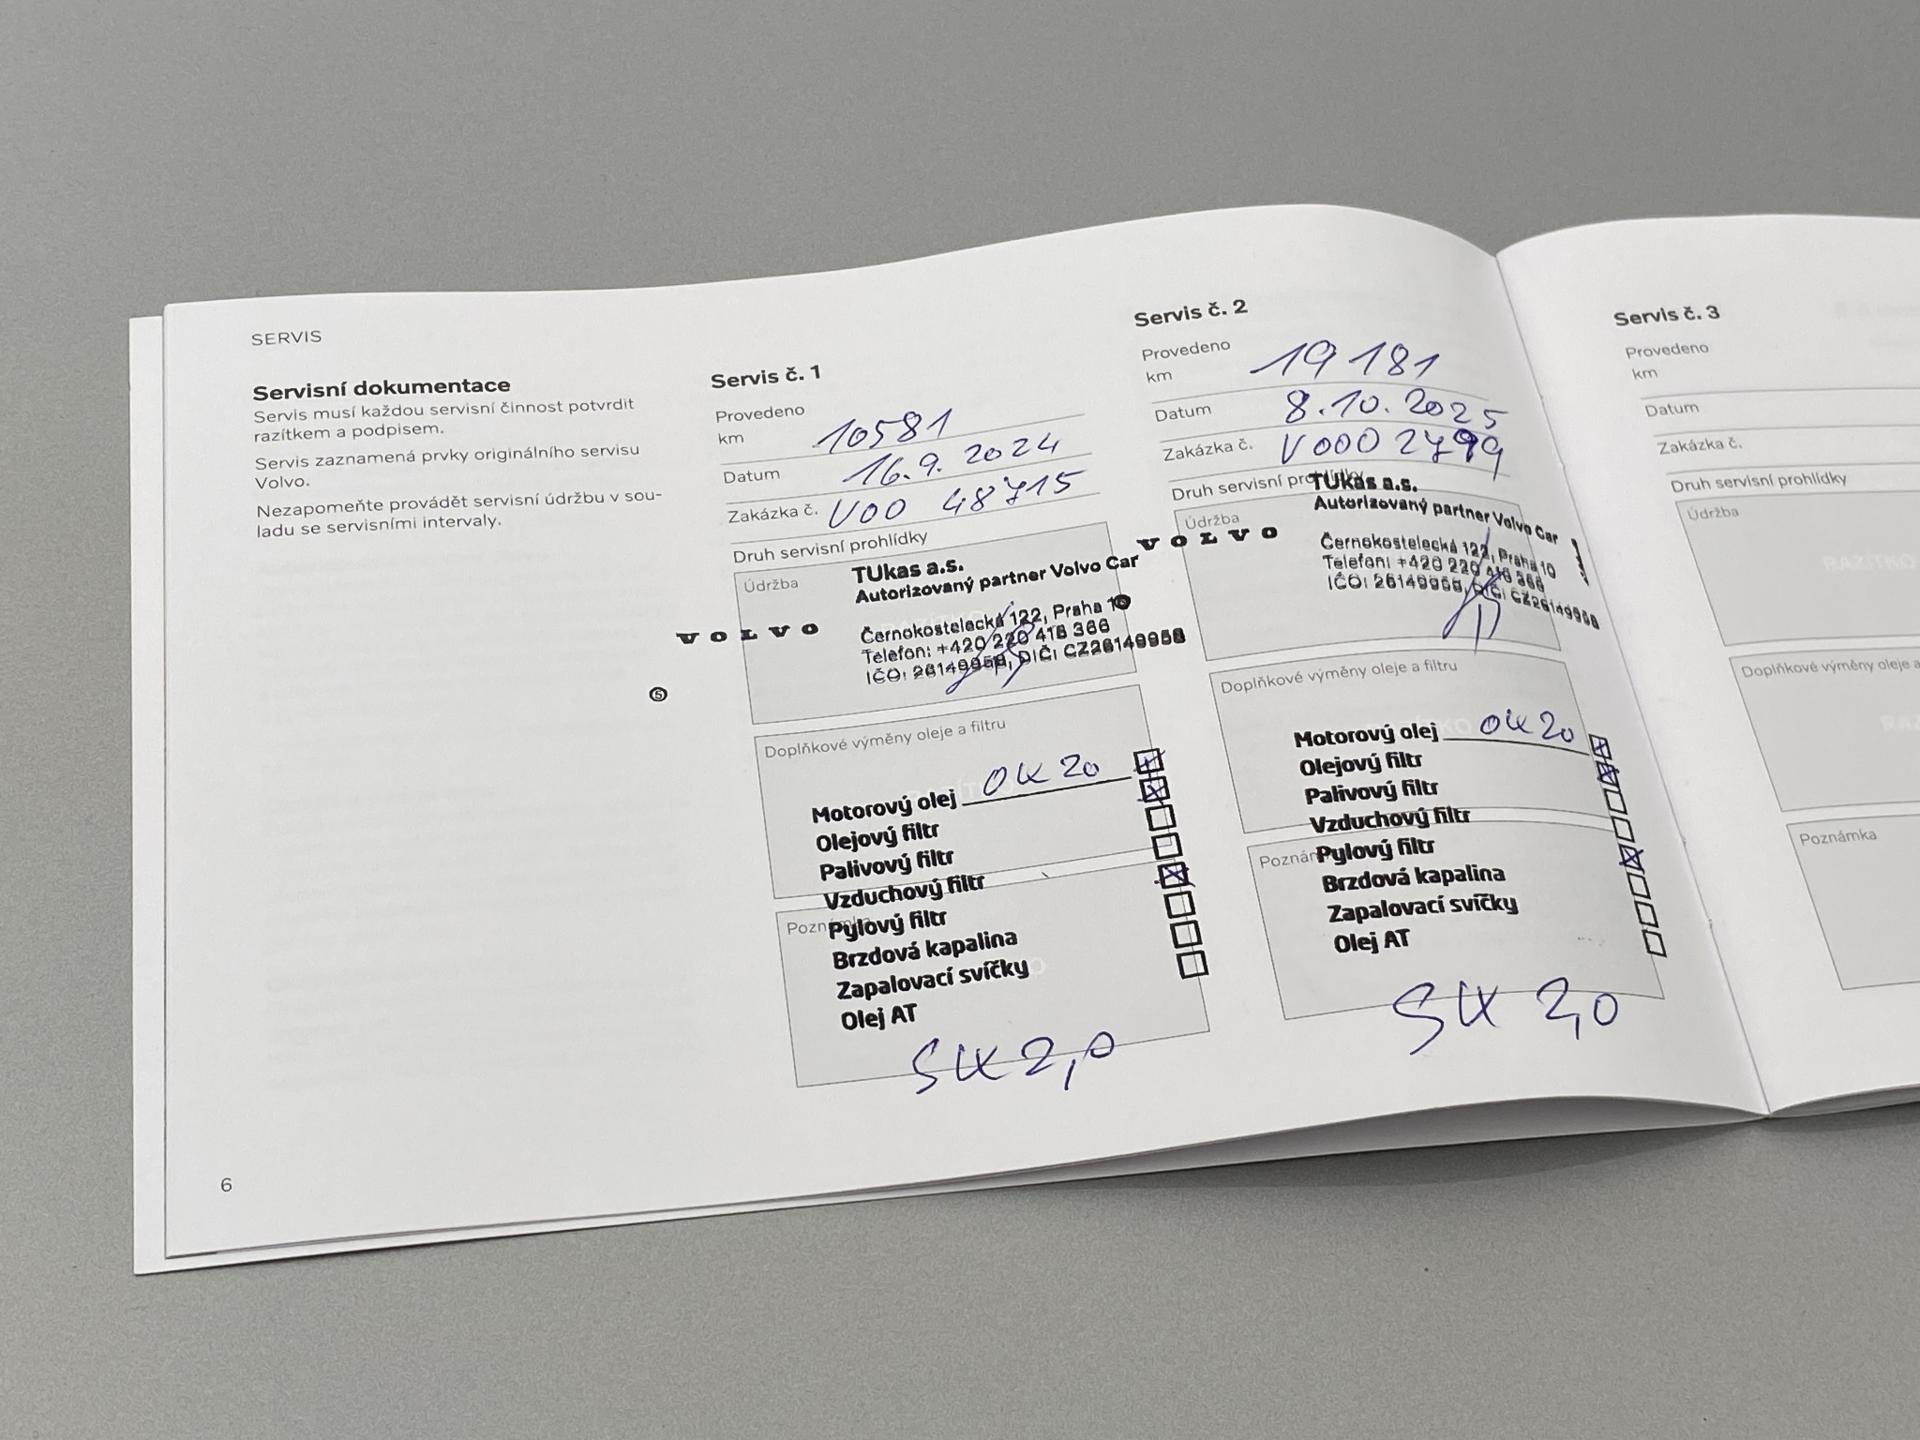 SERVIS
Servisní dokumentace
Servis musí každou servisní činnost potvrdit
razítkem a podpisem.
Servis zaznamená prvky originálního servisu
Volvo.
Nezapomeňte provádět servisní údržbu v sou-
ladu se servisními intervaly.
6
Servis č. 1
Provedeno
km 10581
Datum 16.9.2024
Zakázka č. V00 48715
Druh servisní prohlídky
Údržba
TUkas a.s.
Autorizovaný partner Volvo Car
VOLVO
Černokostelecká 122, Praha 10
Telefon: +420 220 416 366
IČO: 26149958, DIČ: CZ26149958
5
Doplňkové výměny oleje a filtru
Motorový olej 0W20
Olejový filtr
Palivový filtr
Vzduchový filtr
Poznámka
Pylový filtr
Brzdová kapalina
Zapalovací svíčky
Olej AT
SW 2,0
Servis č. 2
Provedeno
km 19181
Datum 8.10.2025
Zakázka č. V000 2799
Druh servisní prohlídky
Údržba
TUkas a.s.
Autorizovaný partner Volvo Car
VOLVO
Černokostelecká 122, Praha 10
Telefon: +420 220 416 366
IČO: 26149958, DIČ: CZ26149958
Doplňkové výměny oleje a filtru
Motorový olej 0W20
Olejový filtr
Palivový filtr
Vzduchový filtr
Pylový filtr
Brzdová kapalina
Zapalovací svíčky
Olej AT
SW 2,0
Servis č. 3
Provedeno
km
Datum
Zakázka č.
Druh servisní prohlídky
Údržba
RAZÍTKO
Doplňkové výměny oleje a
Poznámka